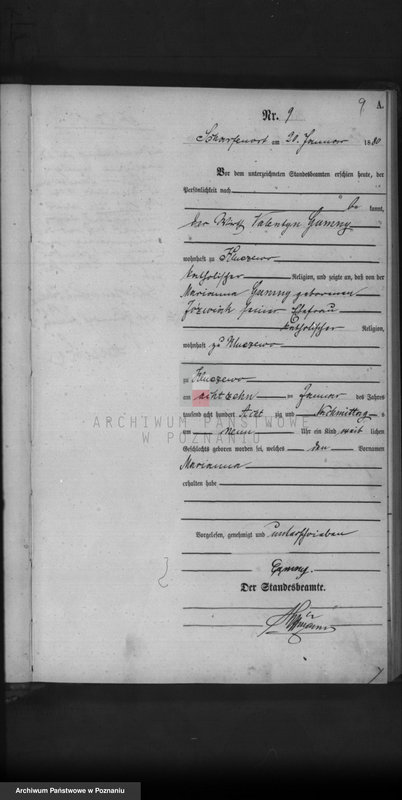 9 A.
Nr. 9
Scharfenort am 20. Januar 1880
Vor dem unterzeichneten Standesbeamten erschien heute, der
Persönlichkeit nach
be kannt,
der Wirth Valentyn Gumny
wohnhaft zu Kluczewo
katholischer Religion, und zeigte an, daß von der
Marianna Gumny geborenen
Józwiak seiner Ehefrau
katholischer Religion,
wohnhaft zu Kluczewo
zu Kluczewo
am achtzehn ten Januar des Jahres
tausend acht hundert acht zig und Nachmittag s
um neun Uhr ein Kind weib lichen
Geschlechts geboren worden sei, welches den Vornamen
Marianna
erhalten habe
ARCHIWUM PAŃSTWOWE
W POZNANIU
Vorgelesen, genehmigt und unterschrieben
Der Standesbeamte.
Archiwum Państwowe w Poznaniu